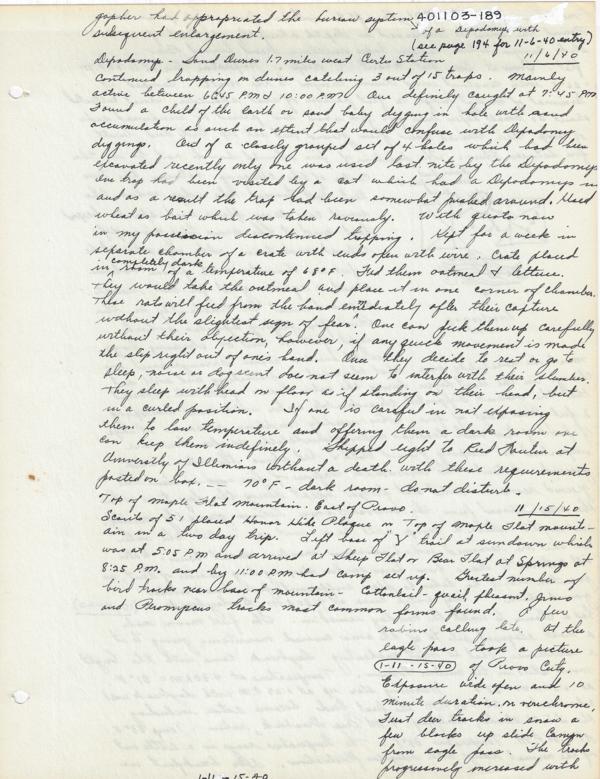 gopher had appropriated the burrow system 401103-189
subsequent enlargement. of a Dipodomys with
(see page 194 for 11-6-40 entry)
Dipodomys - Sand Dunes 1.7 miles west Curtis Station 11/6/40
Continued trapping on dunes catching 3 out of 15 traps. Mainly
active between 6:45 P.M & 10:00 P.M. One definely caught at 7:45 P.M
Found a child of the earth or sand baby digging in hole with sand
accumulation as such an extent that would confuse with Dipodomy
diggings. Out of a closely grouped set of 4 holes which had been
excavated recently only one was used last nite by the Dipodomys
One trap had been visited by a cat which had a Dipodomys in
and as a result the trap had been somewhat pushed around. Used
wheat as bait which was taken raviously. With quota now
in my possession discontinued trapping. Kept for a week in
separate chamber of a crate with ends open with wire. Crate placed
in completely dark room of a temperature of 68°F. Fed them oatmeal & lettuce.
They would take the oatmeal and place it in one corner of chamber.
These rats will feed from the hand emediately after their capture
without the slightest sign of fear. One can pick them up carefully
without their objection, however, if any quick movement is made
the slip right out of one's hand. Once they decide to rest or go to
sleep, noise or dog scent does not seem to interfer with their slumber.
They sleep with head on floor as if standing on their head, but
in a curled position. If one is careful in not exposing
them to low temperature and offering them a dark room one
can keep them indefinely. Shipped eight to Reed at
University of without a death with these requirements
posted on box. -- 70°F - dark room - do not disturb.
Top of Maple Flat Mountain. East of Provo. 11/15/40
Scouts of 51 placed Honor Hike Plaque on Top of Maple Flat mount-
ain in a two day trip. Left base of "Y" trail at sundown which
was at 5:05 P.M and arrived at Sheep Flat or Bear Flat at Springs at
8:25 P.M. and by 11:00 P.M had camp set up. Greatest number of
bird tracks near base of mountain - Cottontail - quail, pheasant, Juncos
and Peromyscus tracks most common forms found. A few
robins calling late. At the
eagle pass took a picture
1-11-15-40 of Provo City.
Exposure wide open and 10
minute duration, on verichrome.
Just deer tracks in snow a
few blocks up slide Canyon
from eagle pass. The tracks
progressively increased with
1-11-15-40